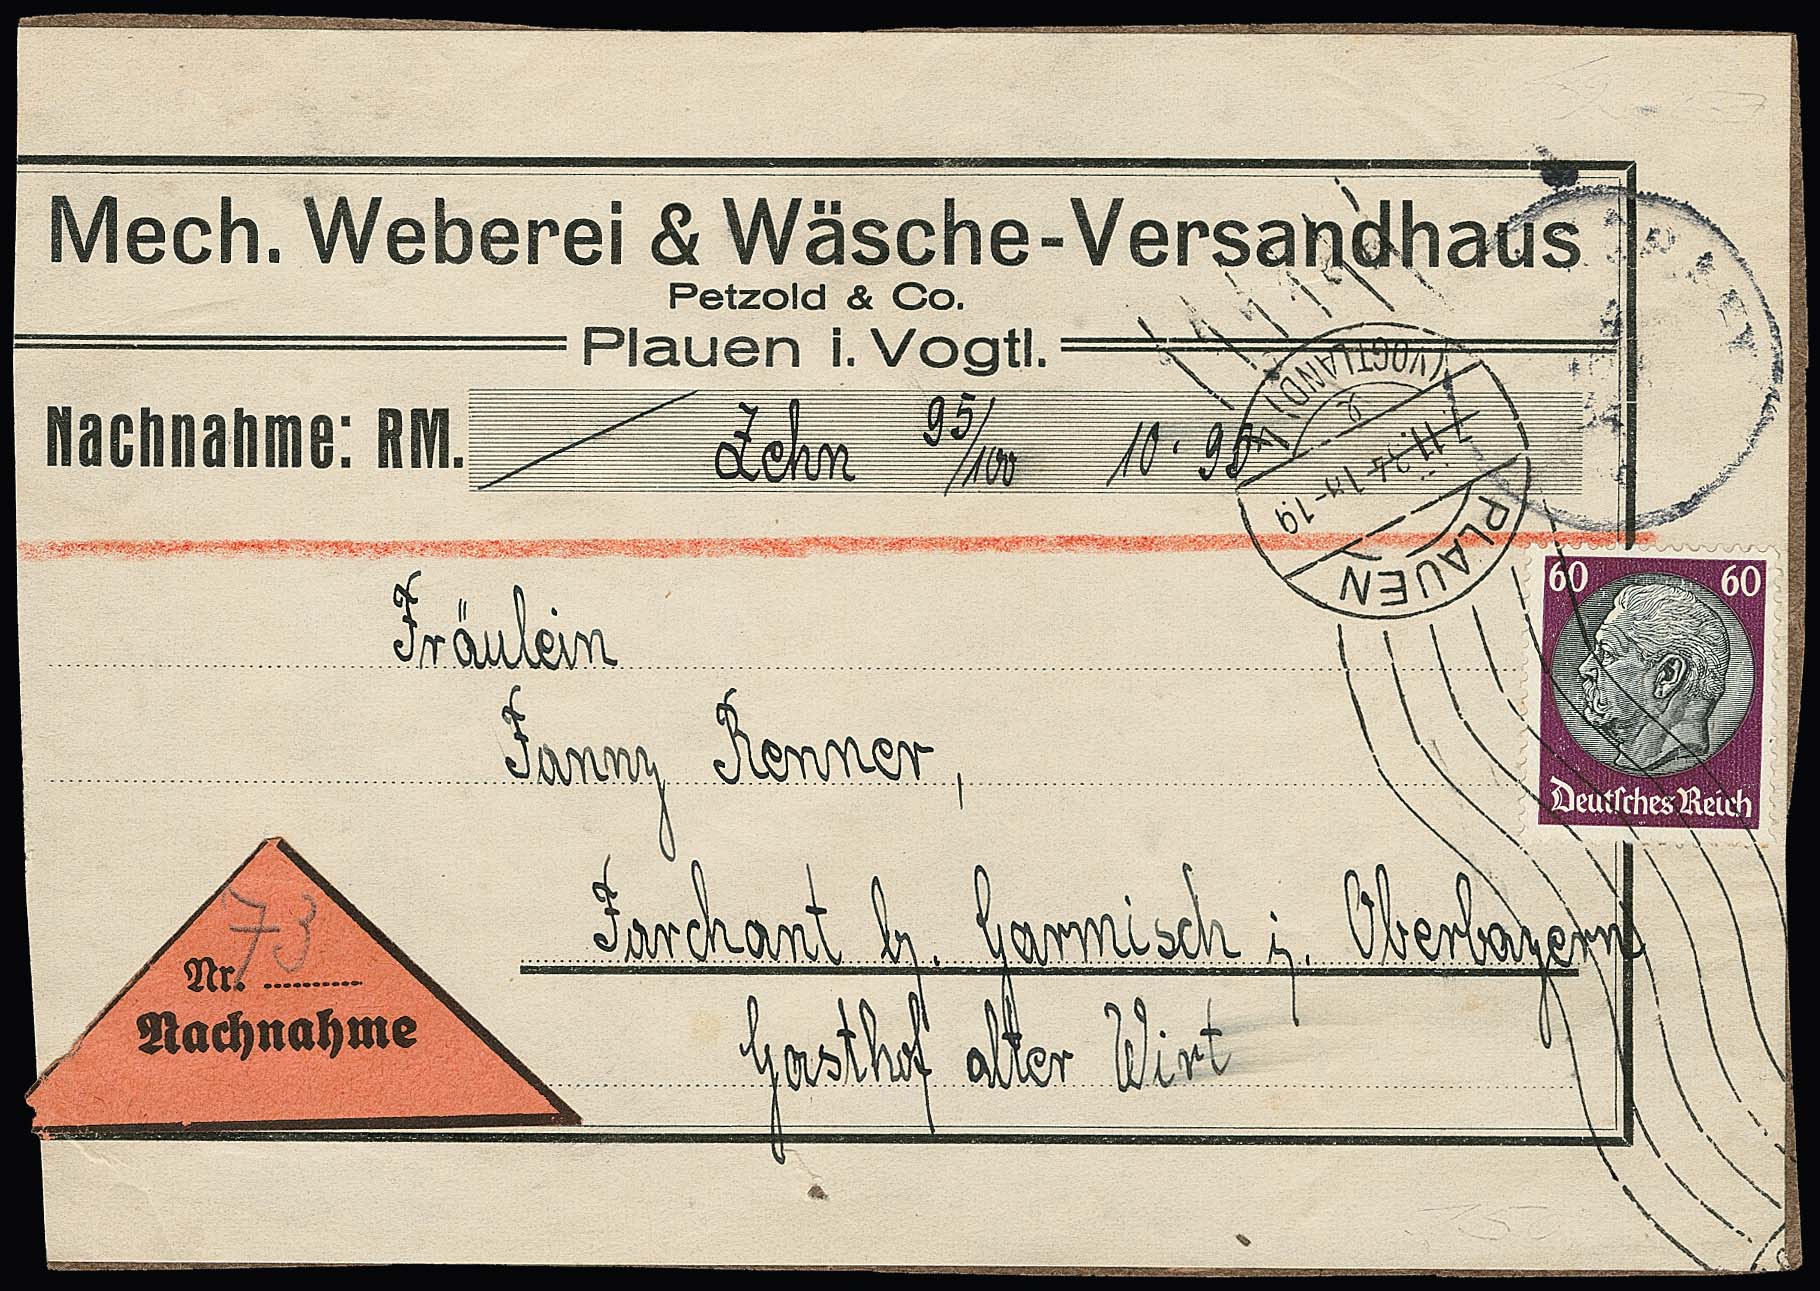 Mech. Weberei & Wäsche-Versandhaus
Petzold & Co.
Plauen i. Vogtl.
Nachnahme: RM. Zehn 95/100 10.95
PLAUEN (VOGTLAND) 4
Fräulein
Fanny Renner,
60 60
Deutsches Reich
Farchant b. Garmisch i. Oberbayern
Gasthof alter Wirt
73
Nr.
Nachnahme